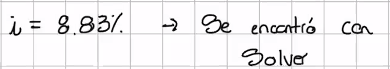 i = 8.83% → Se encontró con
Solver